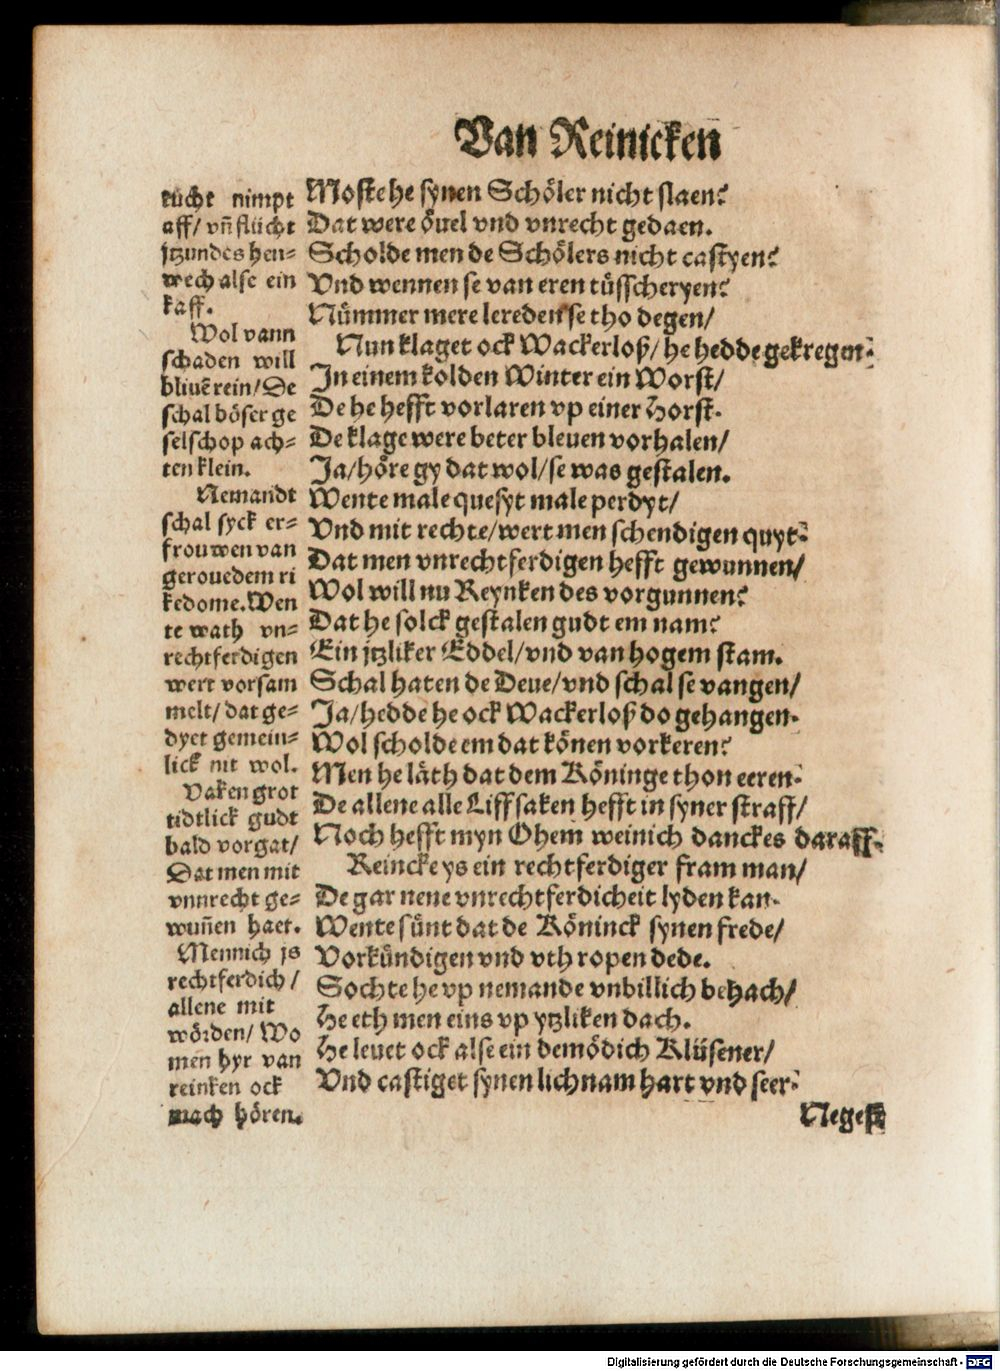 Van Reinicken
kücht nimpt
aff/ vn̄ flücht
jtzundes hen⸗
wech alse ein
kaff.
Wol vann
schaden will
bliuē rein/ De
schal böser ge
selschop ach⸗
ten klein.
Nemandt
schal syck er⸗
frouwen van
gerouedem ri
kedome. Wen
te wath vn⸗
rechtferdigen
wert vorsam
melt/ dat ge⸗
dyet gemein⸗
lick nit wol.
Vaken grot
tidtlick gudt
bald vorgat/
Dat men mit
vnnrecht ge⸗
wun̄en haet.
Mennich js
rechtferdich/
allene mit
wörden/ Wo
men hyr van
reinken ock
mach hören.
Moste he synen Schöler nicht slaen?
Dat were öuel vnd vnrecht gedaen.
Scholde men de Schölers nicht castyen?
Vnd wennen se van eren tüsscheryen?
Nümmer mere lereden se tho degen/
Nun klaget ock Wackerloß/ he hedde gekregen:
In einem kolden Winter ein Worst/
De he hefft vorlaren vp einer Horst.
De klage were beter bleuen vorhalen/
Ja/ höre gy dat wol/ se was gestalen.
Wente male quesyt male perdyt/
Vnd mit rechte/ wert men schendigen quyt:
Dat men vnrechtferdigen hefft gewunnen/
Wol will nu Reynken des vorgunnen?
Dat he solck gestalen gudt em nam?
Ein jtzliker Eddel/ vnd van hogem stam.
Schal haten de Deue/ vnd schal se vangen/
Ja/ hedde he ock Wackerloß do gehangen.
Wol scholde em dat könen vorkeren?
Men he läth dat dem Köninge thon eeren:
De allene alle Liffsaken hefft in syner straff/
Noch hefft myn Ohem weinich danckes daraff.
Reincke ys ein rechtferdiger fram man/
De gar nene vnrechtferdicheit lyden kan.
Wente sünt dat de Köninck synen frede/
Vorkündigen vnd vth ropen dede.
Sochte he vp nemande vnbillich behach/
He eth men eins vp ytzliken dach.
He leuet ock alse ein demödich Klüsener/
Vnd castiget synen lichnam hart vnd seer:
Negest
Digitalisierung gefördert durch die Deutsche Forschungsgemeinschaft - DFG